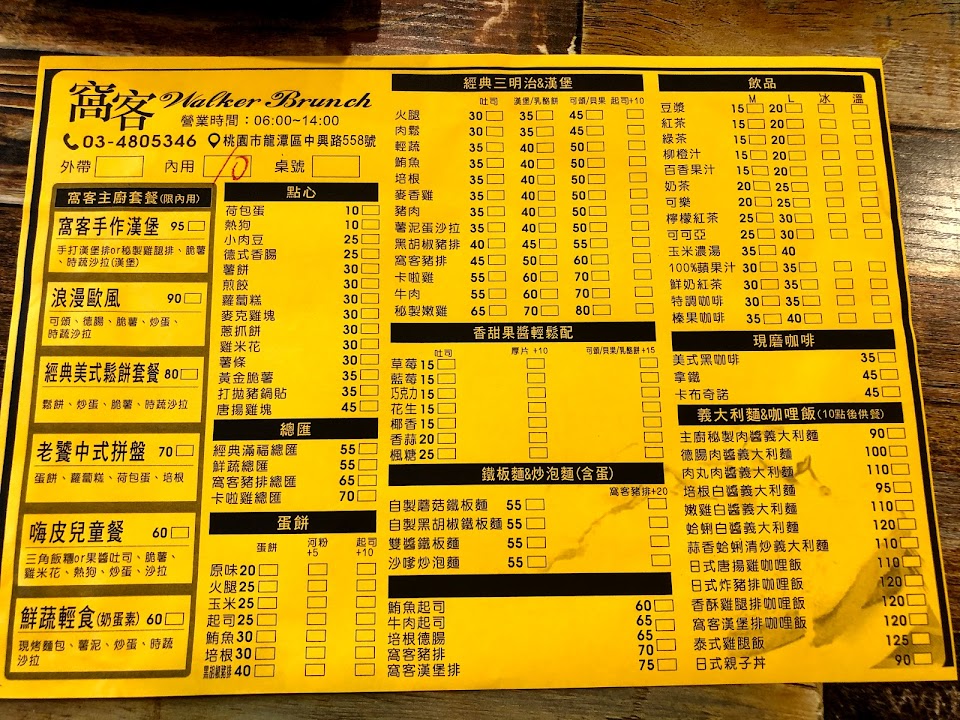 窩客 Walker Brunch
營業時間：06:00~14:00
03-4805346 桃園市龍潭區中興路558號
外帶 內用 桌號
窩客主廚套餐(限內用)
窩客手作漢堡 95
手打漢堡排or秘製雞腿排、脆薯
、時蔬沙拉(漢堡)
浪漫歐風 90
可頌、德腸、脆薯、炒蛋、
時蔬沙拉
經典美式鬆餅套餐 80
鬆餅、炒蛋、脆薯、時蔬沙拉
老饕中式拼盤 70
蛋餅、蘿蔔糕、荷包蛋、培根
嗨皮兒童餐 60
三角飯糰or果醬吐司、脆薯、
雞米花、熱狗、炒蛋、沙拉
鮮蔬輕食(奶蛋素) 60
現烤麵包、薯泥、炒蛋、時蔬
沙拉
點心
荷包蛋 10
熱狗 10
小肉豆 25
德式香腸 25
薯餅 30
煎餃 30
蘿蔔糕 30
麥克雞塊 30
蔥抓餅 30
雞米花 30
薯條 30
黃金脆薯 35
打拋豬鍋貼 35
唐揚雞塊 45
總匯
經典滿福總匯 55
鮮蔬總匯 55
窩客豬排總匯 65
卡啦雞總匯 70
蛋餅
蛋餅 河粉+5 起司+10
原味 20
火腿 25
玉米 25
起司 25
鮪魚 30
培根 30
黑胡椒豬排 40
經典三明治&漢堡
吐司 漢堡/乳酪餅 可頌/貝果 起司+10
火腿 30 35 45
肉鬆 30 35 45
輕蔬 35 40 50
鮪魚 35 40 50
培根 35 40 50
麥香雞 35 40 50
豬肉 35 40 50
薯泥蛋沙拉 35 40 50
黑胡椒豬排 40 45 55
窩客豬排 45 50 60
卡啦雞 55 60 70
牛肉 55 60 70
秘製嫩雞 65 70 80
香甜果醬輕鬆配
吐司 厚片 +10 可頌/貝果/乳酪餅 +15
草莓 15
藍莓 15
巧克力 15
花生 15
椰香 15
香蒜 20
楓糖 25
鐵板麵&炒泡麵(含蛋)
窩客豬排+20
自製蘑菇鐵板麵 55
自製黑胡椒鐵板麵 55
雙醬鐵板麵 55
沙嗲炒泡麵 55
鮪魚起司 60
牛肉起司 65
培根德腸 65
窩客豬排 70
窩客漢堡排 75
飲品
M L 冰 溫
豆漿 15 20
紅茶 15 20
綠茶 15 20
柳橙汁 15 20
百香果汁 15 20
奶茶 20 25
可樂 20 25
檸檬紅茶 25 30
可可亞 25 30
玉米濃湯 35 40
100%蘋果汁 30 35
鮮奶紅茶 30 35
特調咖啡 30 35
榛果咖啡 35 40
現磨咖啡
美式黑咖啡 35
拿鐵 45
卡布奇諾 45
義大利麵&咖哩飯(10點後供餐)
主廚秘製肉醬義大利麵 90
德腸肉醬義大利麵 100
肉丸肉醬義大利麵 110
培根白醬義大利麵 95
嫩雞白醬義大利麵 110
蛤蜊白醬義大利麵 120
蒜香蛤蜊清炒義大利麵 110
日式唐揚雞咖哩飯 110
日式炸豬排咖哩飯 120
香酥雞腿排咖哩飯 120
窩客漢堡排咖哩飯 120
泰式雞腿飯 125
日式親子丼 90